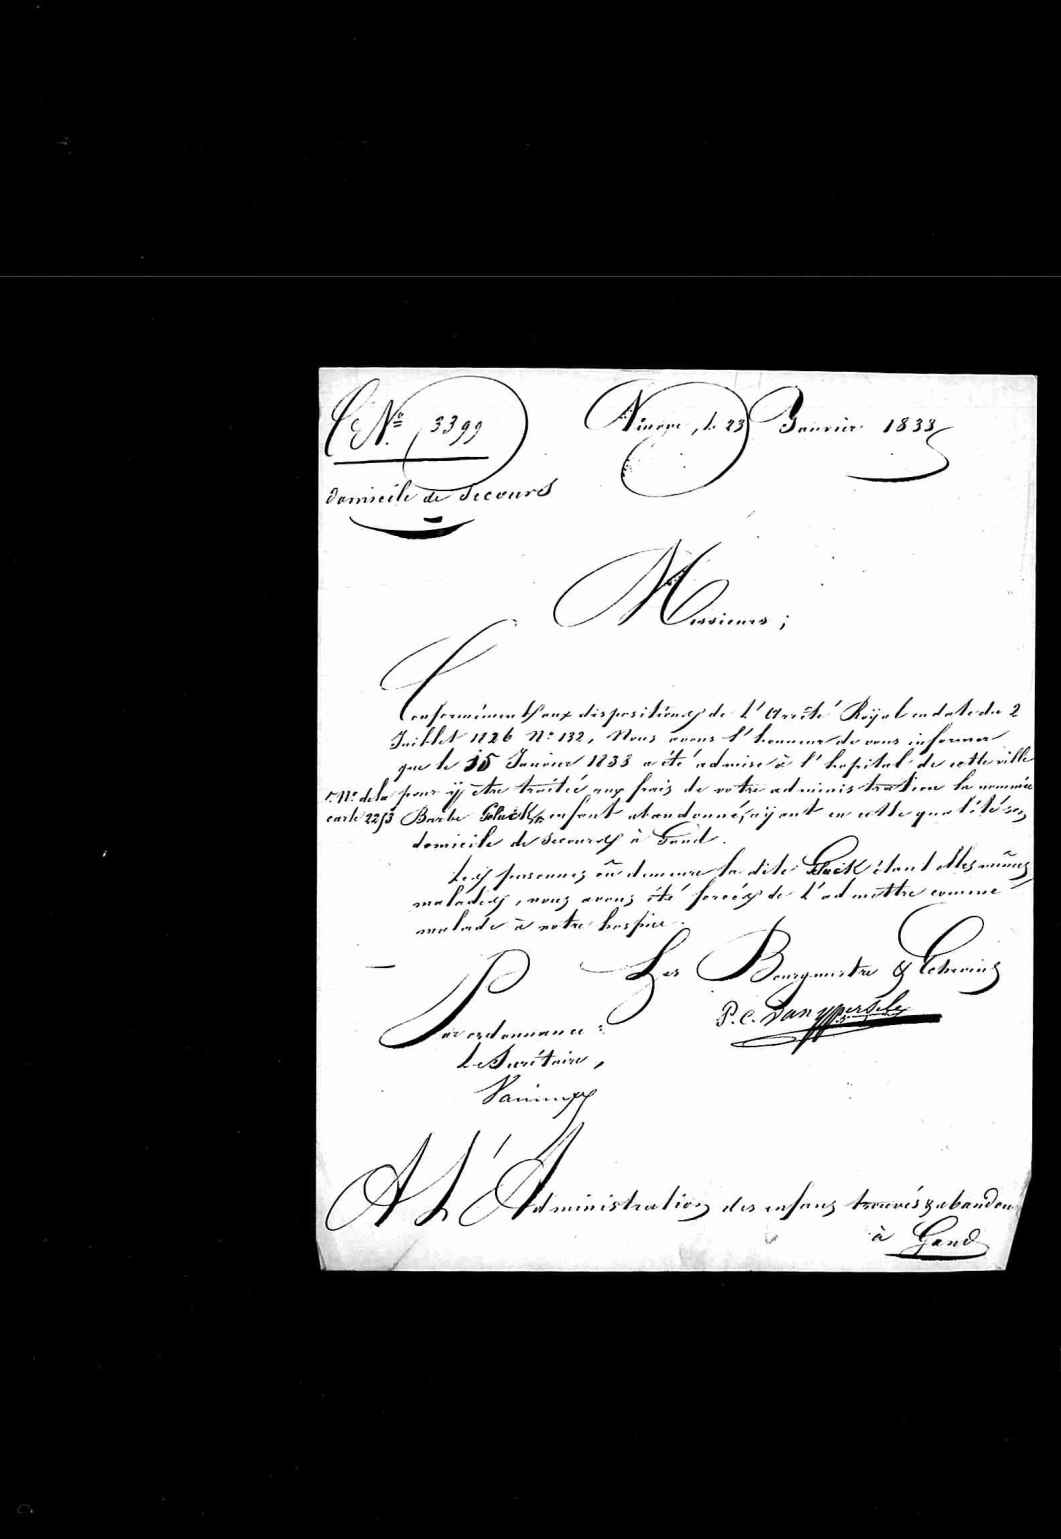 N.º 3399
Ninove, le 23 Janvier 1833
domicile de Secours
Messieurs;
Conformément aux dispositions de L'Arrêté Röyal en date du 2
Juillet 1826 N.º 132, Nous avons l'honneur de vous informer
que le 15 Janvier 1833 a été admise à l'hopital de cette ville
pour ÿ etre traitée aux frais de votre administration la nommée
N.º de la
carte 2253
Barbe enfant abandonné, aÿant en cette qualité son
domicile de Secours à Gand.
Les personnes où demeure la dite étant elles mêmes
malades, nous avons été forcés de L'admettre comme
malade à notre hospice.
Les Bourgmestre & Echevins
Par ordonnance:
Le Secrétaire,
A L'Administration des enfans trouvés & abandon
à Gand